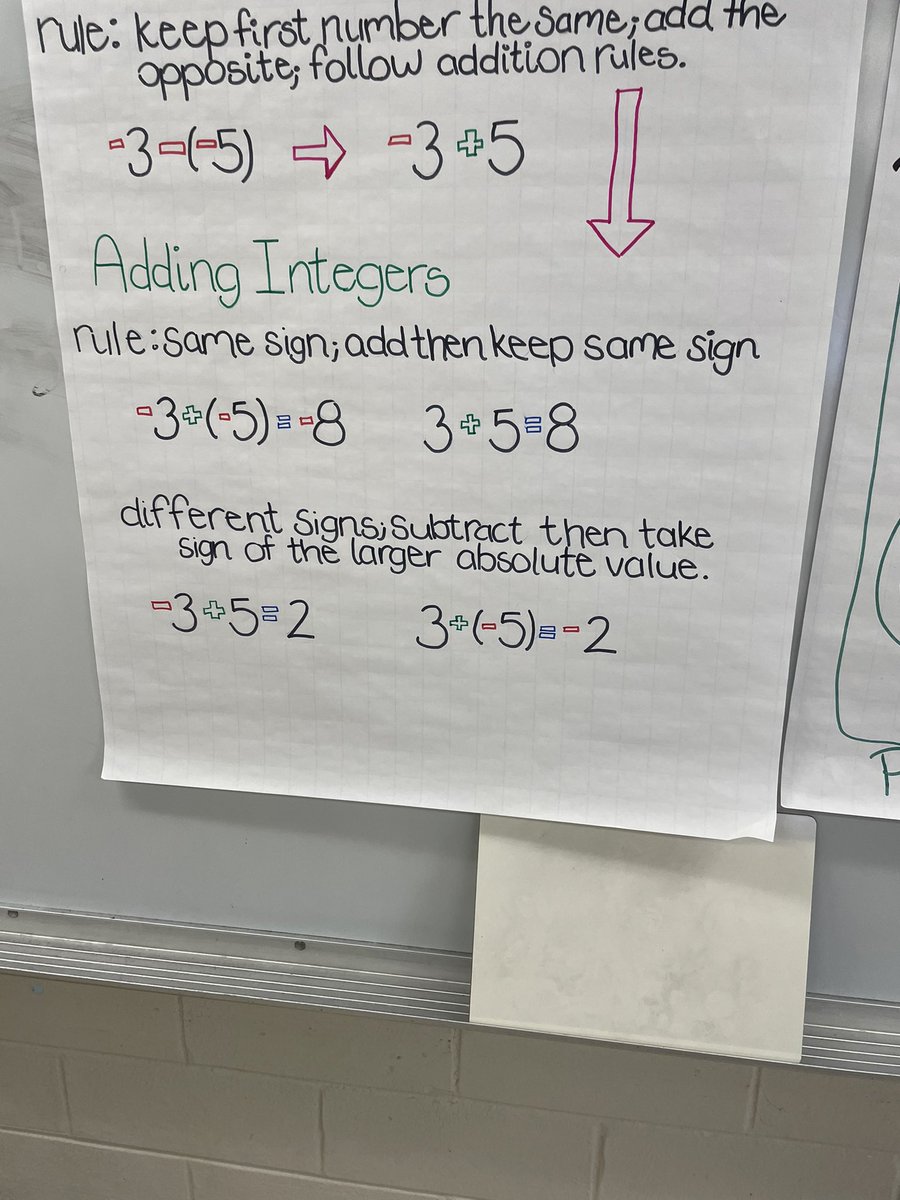 rule: keep first number the same; add the
opposite; follow addition rules.
-3-(-5) ⇒ -3+5
Adding Integers
rule: same sign; add then keep same sign
-3+(-5)=-8 3+5=8
different signs; subtract then take
sign of the larger absolute value.
-3+5=2 3+(-5)=-2